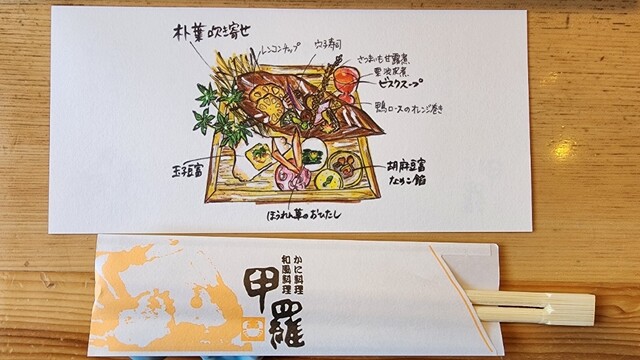 朴葉吹き寄せ
レンコンチップ
穴子寿司
さつまいも甘露煮
栗渋皮煮
ビスクスープ
鴨ロースのオレンジ巻き
玉子豆富
胡麻豆富
なめこ餡
ほうれん草のおひたし
かに料理
和風料理
甲羅